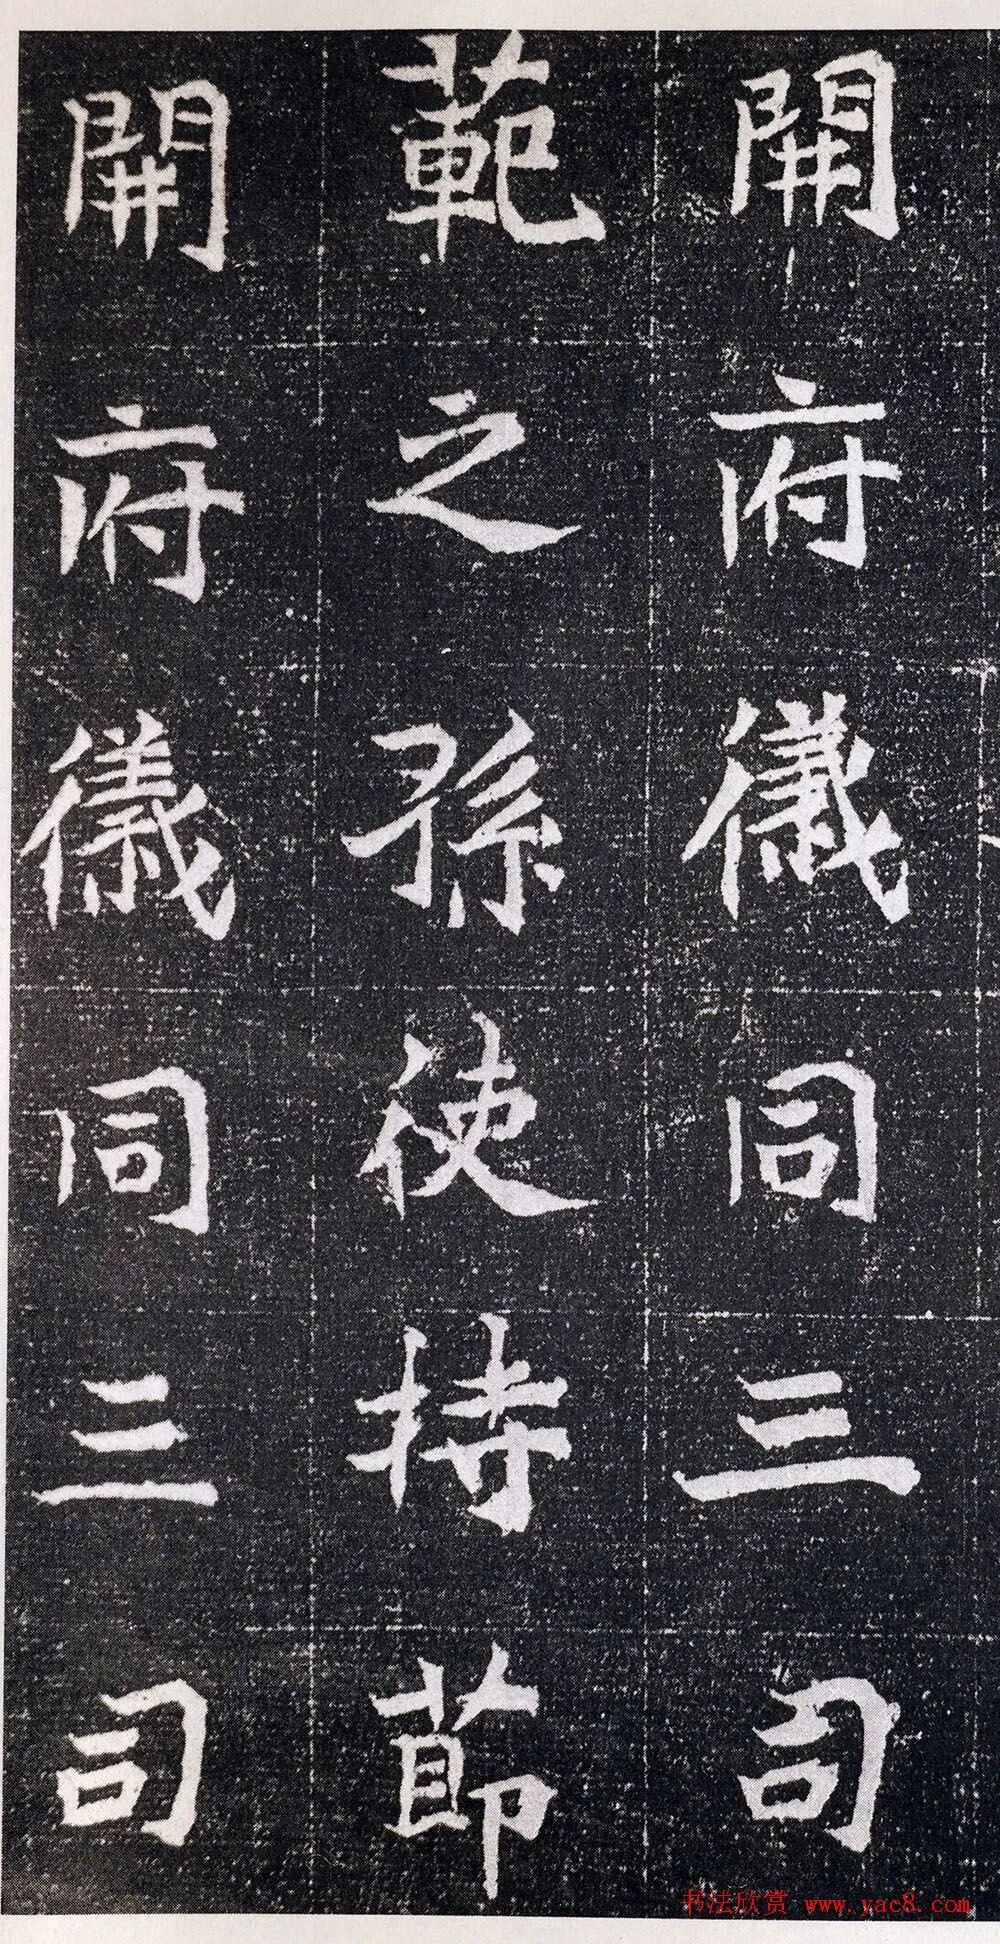 開府儀同三司
範之孫使持節
開府儀同三司
书法欣赏 www.yac8.com